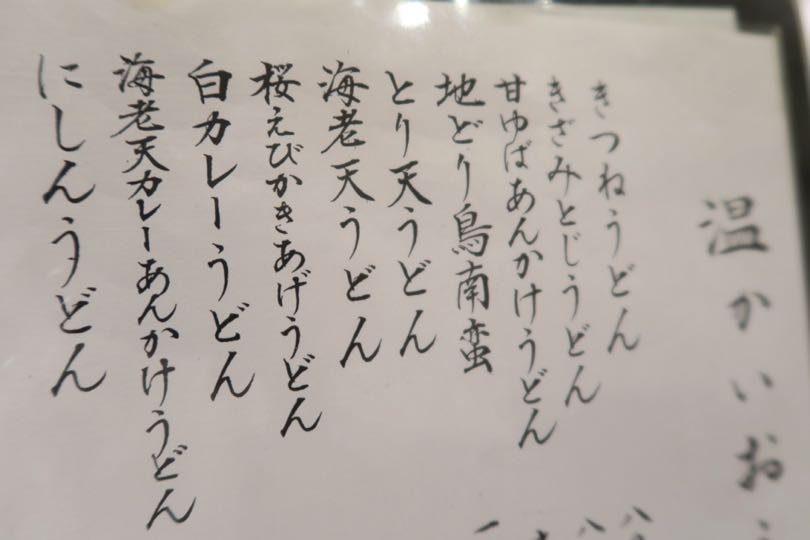 温かいお
きつねうどん
きざみとじうどん
甘ゆばあんかけうどん
地どり鳥南蛮
とり天うどん
海老天うどん
桜えびかきあげうどん
白カレーうどん
海老天カレーあんかけうどん
にしんうどん
八
八